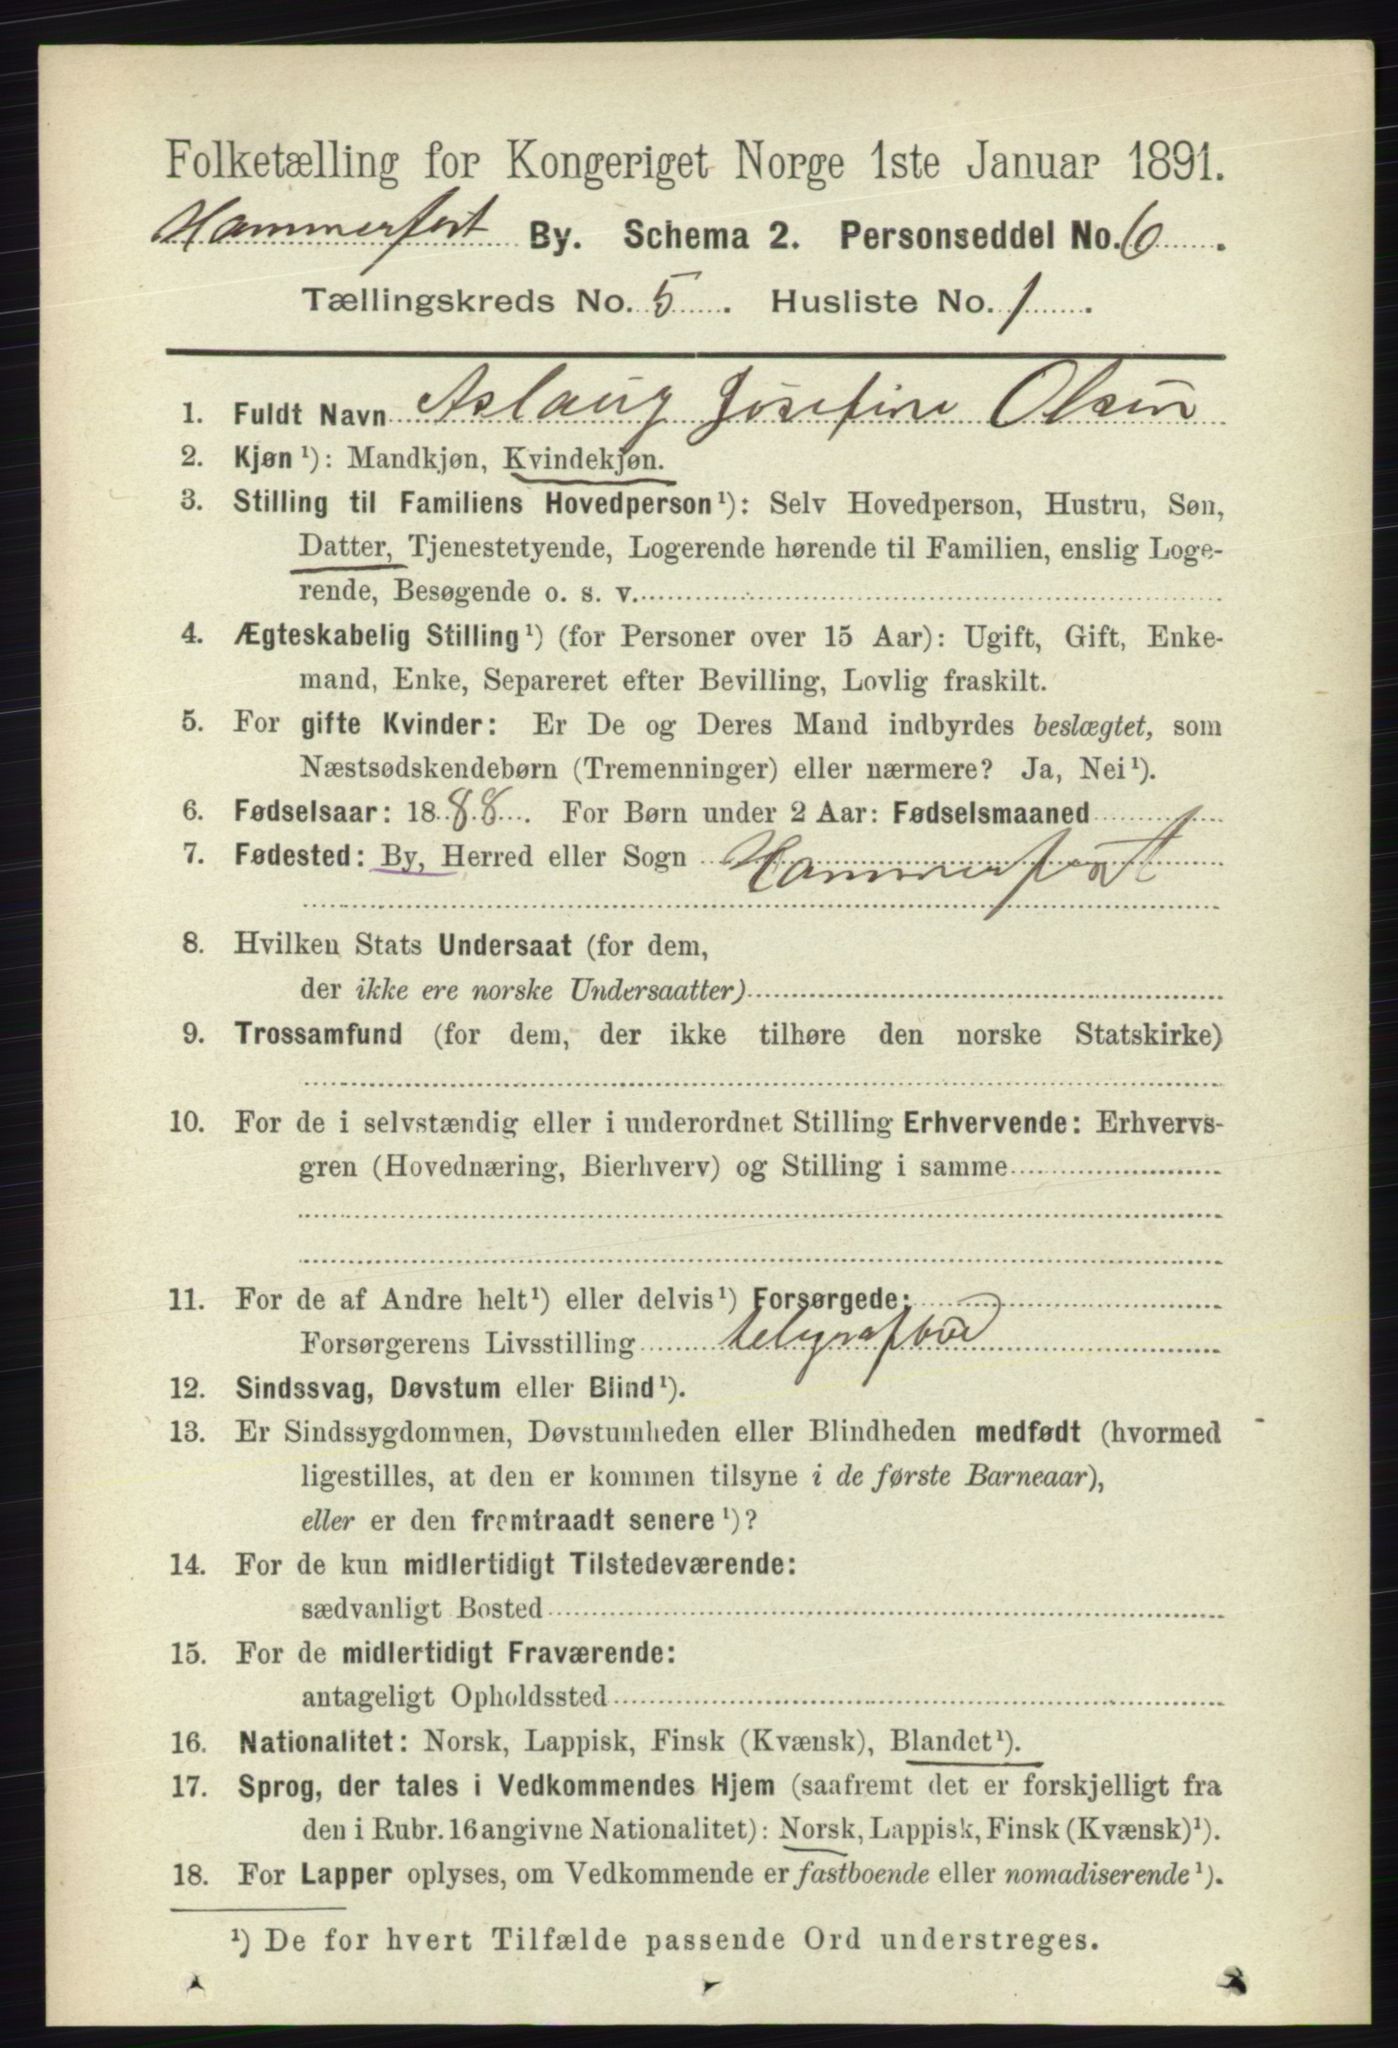 Folketælling for Kongeriget Norge 1ste Januar 1891.
Hammerfest By. Schema 2. Personseddel No. 6.
Tællingskreds No. 5. Husliste No. 1.
1. Fuldt Navn Aslaug Josefine Olsen
2. Kjøn¹): Mandkjøn, Kvindekjøn.
3. Stilling til Familiens Hovedperson¹): Selv Hovedperson, Hustru, Søn,
Datter, Tjenestetyende, Logerende hørende til Familien, enslig Loge-
rende, Besøgende o. s. v.
4. Ægteskabelig Stilling¹) (for Personer over 15 Aar): Ugift, Gift, Enke-
mand, Enke, Separeret efter Bevilling, Lovlig fraskilt.
5. For gifte Kvinder: Er De og Deres Mand indbyrdes beslægtet, som
Næstsødskendebørn (Tremenninger) eller nærmere? Ja, Nei¹).
6. Fødselsaar: 1888. For Børn under 2 Aar: Fødselsmaaned
7. Fødested: By, Herred eller Sogn Hammerfest
8. Hvilken Stats Undersaat (for dem,
der ikke ere norske Undersaatter)
9. Trossamfund (for dem, der ikke tilhøre den norske Statskirke)
10. For de i selvstændig eller i underordnet Stilling Erhvervende: Erhvervs-
gren (Hovednæring, Bierhverv) og Stilling i samme
11. For de af Andre helt¹) eller delvis¹) Forsørgede:
Forsørgerens Livsstilling telegrafbud
12. Sindssvag, Døvstum eller Blind¹).
13. Er Sindssygdommen, Døvstumheden eller Blindheden medfødt (hvormed
ligestilles, at den er kommen tilsyne i de første Barneaar),
eller er den fremtraadt senere¹)?
14. For de kun midlertidigt Tilstedeværende:
sædvanligt Bosted
15. For de midlertidigt Fraværende:
antageligt Opholdssted
16. Nationalitet: Norsk, Lappisk, Finsk (Kvænsk), Blandet¹).
17. Sprog, der tales i Vedkommendes Hjem (saafremt det er forskjelligt fra
den i Rubr. 16 angivne Nationalitet): Norsk, Lappisk, Finsk (Kvænsk)¹).
18. For Lapper oplyses, om Vedkommende er fastboende eller nomadiserende¹).
¹) De for hvert Tilfælde passende Ord understreges.